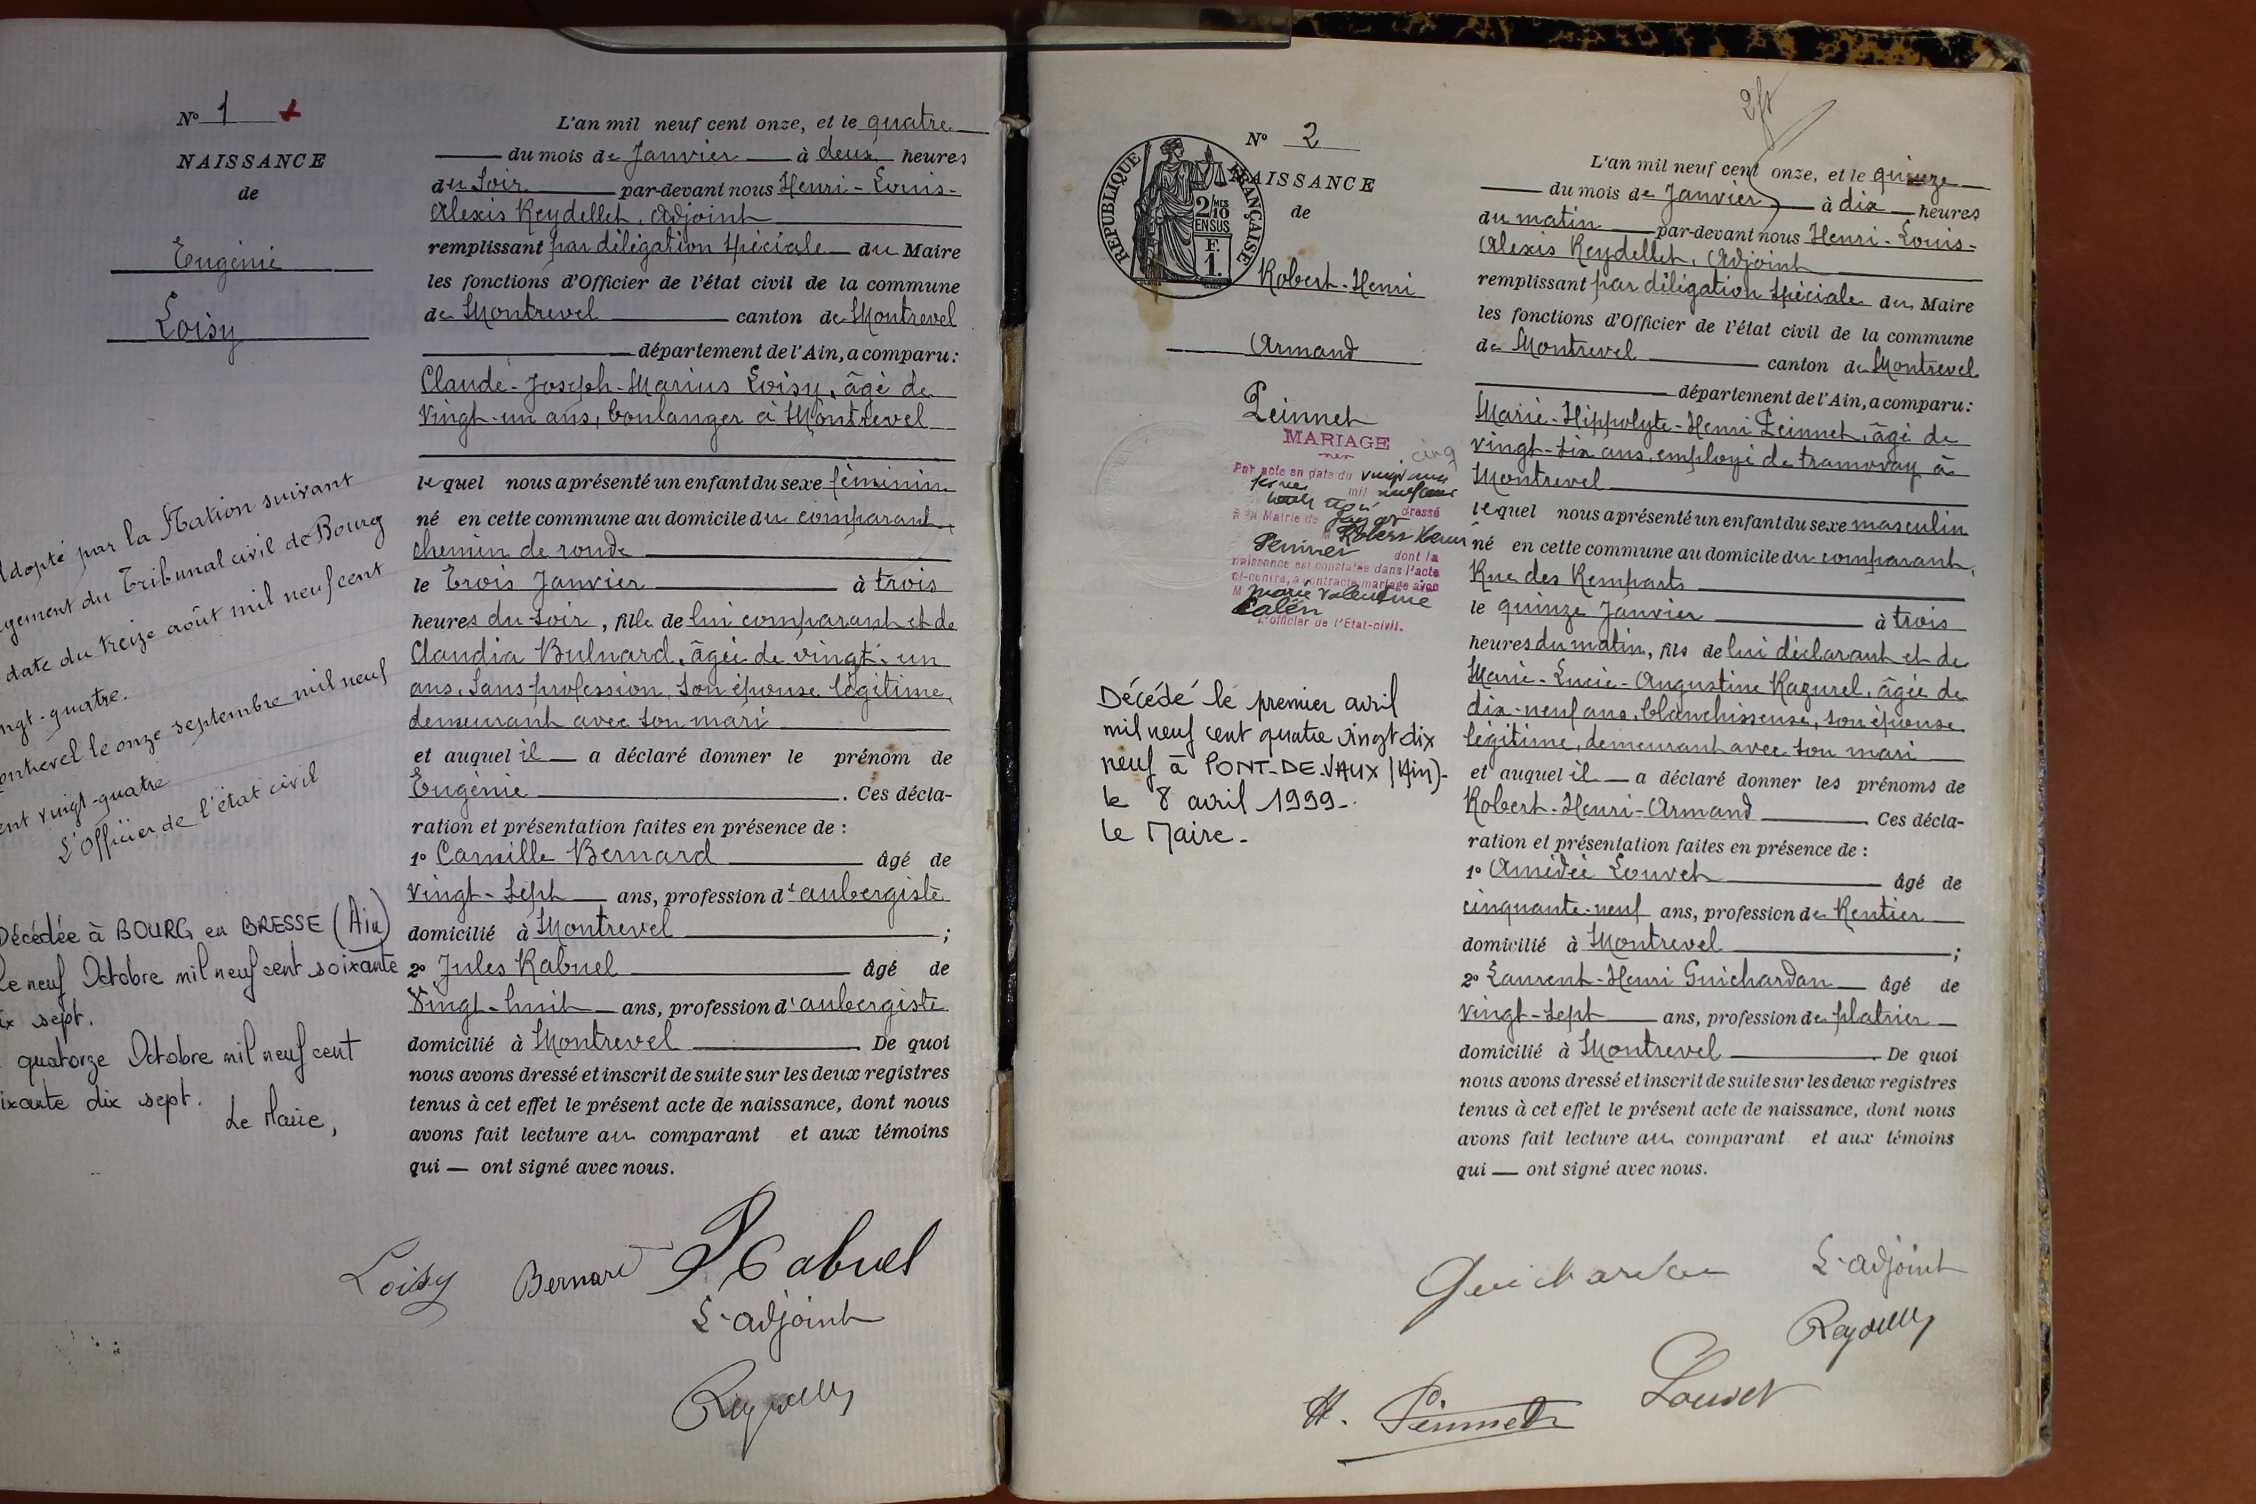 N° 1 +
NAISSANCE
de
Eugénie
Loisy
Adopté par la Nation suivant
jugement du Tribunal civil de Bourg
date du treize août mil neuf cent
vingt-quatre.
Montrevel le onze septembre mil neuf
cent vingt-quatre
L'Officier de l'état civil
Décédée à BOURG en BRESSE (Ain)
le neuf Octobre mil neuf cent soixante
dix sept.
quatorze Octobre mil neuf cent
soixante dix sept.
Le Maire,
L'an mil neuf cent onze, et le quatre
du mois de Janvier à deux heures
du soir par-devant nous Henri-Louis-
Alexis Reydellet, Adjoint
remplissant par délégation spéciale du Maire
les fonctions d'Officier de l'état civil de la commune
de Montrevel canton de Montrevel
département de l'Ain, a comparu:
Claude-Joseph-Marius Loisy, âgé de
vingt-un ans, boulanger à Montrevel
lequel nous a présenté un enfant du sexe féminin
né en cette commune au domicile du comparant,
chemin de ronde
le Trois Janvier à trois
heures du soir, fille de lui comparant et de
Claudia Bulnard, âgée de vingt-un
ans, sans profession, son épouse légitime,
demeurant avec son mari
et auquel il a déclaré donner le prénom de
Eugénie. Ces décla-
ration et présentation faites en présence de:
1° Camille Bernard âgé de
vingt-sept ans, profession d'aubergiste
domicilié à Montrevel;
2° Jules Rabuel âgé de
vingt-huit ans, profession d'aubergiste
domicilié à Montrevel De quoi
nous avons dressé et inscrit de suite sur les deux registres
tenus à cet effet le présent acte de naissance, dont nous
avons fait lecture au comparant et aux témoins
qui ont signé avec nous.
Loisy Bernard J Rabuel
L'adjoint
Reydellet
2ft
N° 2
REPUBLIQUE FRANÇAISE
2/10 MES
EN SUS
F.
1.
NAISSANCE
de
Robert-Henri
Armand
Peinnet
MARIAGE
cinq
Par acte en date du
mil neuf cent
dressé
à la Mairie de
M Robert Henri
dont la
naissance est constatée dans l'acte
ci-contre, a contracté mariage avec
M Marie Valentine
Calen
L'officier de l'Etat-civil.
Décédé le premier avril
mil neuf cent quatre vingt dix
neuf à PONT-DE-VAUX (Ain)-
le 8 avril 1999-
le Maire-
L'an mil neuf cent onze, et le quinze
du mois de Janvier à dix heures
du matin par-devant nous Henri-Louis-
Alexis Reydellet, Adjoint
remplissant par délégation spéciale du Maire
les fonctions d'Officier de l'état civil de la commune
de Montrevel canton de Montrevel
département de l'Ain, a comparu:
Marie-Hippolyte-Henri Peinnet, âgé de
vingt-six ans, employé de tramway à
Montrevel
lequel nous a présenté un enfant du sexe masculin
né en cette commune au domicile du comparant,
Rue des Remparts
le quinze Janvier à trois
heures du matin, fils de lui déclarant et de
Marie-Lucie-Augustine Razurel, âgée de
dix-neuf ans, blanchisseuse, son épouse
légitime, demeurant avec son mari
et auquel il a déclaré donner les prénoms de
Robert-Henri-Armand Ces décla-
ration et présentation faites en présence de:
1° Amédée Louvet âgé de
cinquante-neuf ans, profession de Rentier
domicilié à Montrevel;
2° Laurent-Henri Guichardan âgé de
vingt-sept ans, profession de platrier
domicilié à Montrevel. De quoi
nous avons dressé et inscrit de suite sur les deux registres
tenus à cet effet le présent acte de naissance, dont nous
avons fait lecture au comparant et aux témoins
qui ont signé avec nous.
Guichardan L'adjoint
Reydellet
H. Peinnet Louvet